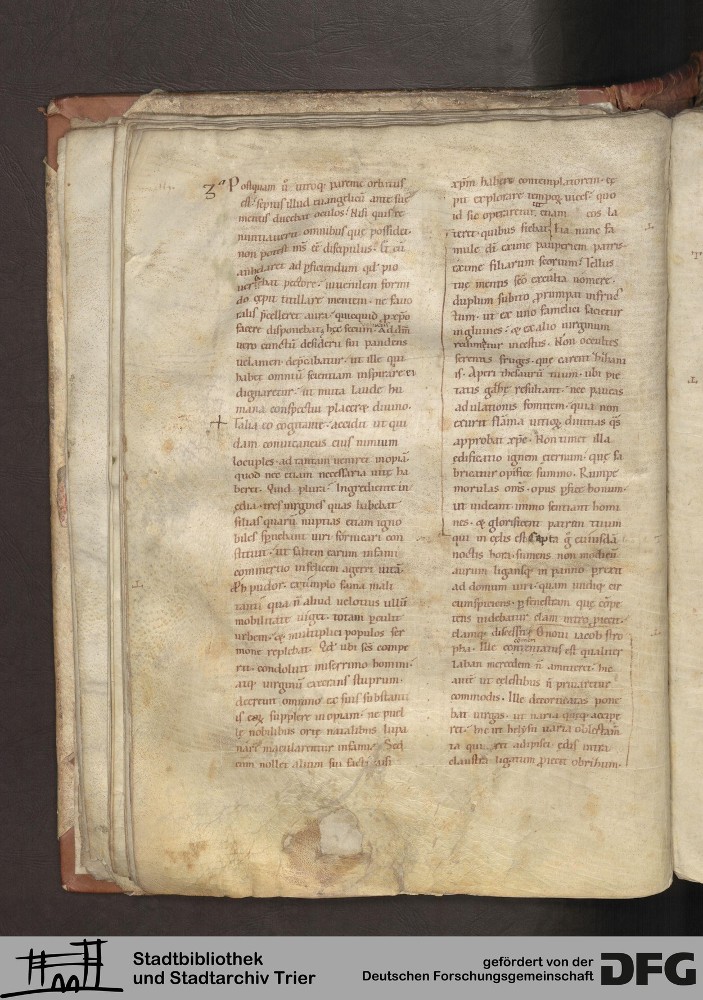 Postquam ū utroq; parente orbatus
est. sepius illud euangelicū ante sue
mentis ducebat oculos. Nisi quis re
nuntiauerit omnibus que possidet.
non potest ms̄ eē discipulus. Et cū
anhelaret ad pficiendum qd pio
pectore. iuuenilem formi
do cepit titillare mentem. ne fauo
ralis pcelleret aura. quicquid p xpo
facere disponebat. hęc secum. Ad dm̄
uero cunctū desiderii sui pandens
uelamen. depcabatur. ut ille qui
habet omniū scientiam inspirare ei
dignaretur. ut muta laude hu
mana conspectui placeret diuino.
Talia eo cogitante. accidit ut qui
dam conuicaneus eius nimium
locuples. ad tantam ueniret inopiā
quod nec etiam necessaria uite ha
beret. Quid plura. Ingrediente in
edia. tres uirgines quas habebat
filias quarū nuptias etiam igno
biles spnebant uiri fornicari con
stituit. ut saltem earum infami
commertio infelicem ageret uitā.
Oh pudor. extimplo fama mali
tanti qua n̄ aliud uelotius ullū
mobilitate uiget. totam pculit
urbem. & multiplici populos ser
mone replebat. Qd ubi scs̄ compe
rit. condoluit miserrimo homini.
atq; uirginū execrans stuprum.
decreuit omnino ex suis substanti
is eoꝝ supplere inopiam. ne puel
lę nobilibus ortę natalibus lupa
nari macularentur infamia. Sed
cum nollet alium sui facti. nisi
xpm̄ habere contemplatorem. ce
pit explorare tempoꝝ uices. quo
id sic operaretur, ut etiam eos la
teret. quibus fiebat
mule dī. exime pauperiem patris
exime filiarum scortum. Tellus
tuę mentis sc̄o exculta uomere.
duplum subito prorumpat in fruc
tum. ut ex uno famelici sacietur
ingluuies. & ex alio uirginum
redimatur incestus. Non occultes
serentis fruges. que carent
is. Aperi thesaurū tuum. ubi pie
tatis resultant. nec paueas
adulationis fomitem. quia non
exurit flāma utriꝰq; diuitias qs̄
approbat xpc. Non timet illa
edificatio ignem eternum. que fa
bricatur opifice summo. Rumpe
morulas oms̄. opus pfice bonum.
ut uideant immo sentiant homi
nes. & glorificent patrem tuum
qui in cęlis est. Capta g̊ cuiusdā
noctis hora. sumens non modicū
aurum ligansq; in panno prexit
ad domum uiri. quam undiq; cir
cumspiciens. p fenestram que cōpe
tens uidebatur clam intro piecit.
clamq; discessit. O noui iacob stro
pha. Ille commentatus est qualiter
laban mercedem n̄ amitteret. hic
anit ut celestibus n̄ priuaretur
commodis. Ille decorticatas pone
bat uirgas. ut uaria queq; accipe
ret. hic ut helysii uaria oblectam̄
ta adipisci. edis intra
claustra ligatum piecit obrihum.
Stadtbibliothek
und Stadtarchiv Trier
gefördert von der
Deutschen Forschungsgemeinschaft
DFG